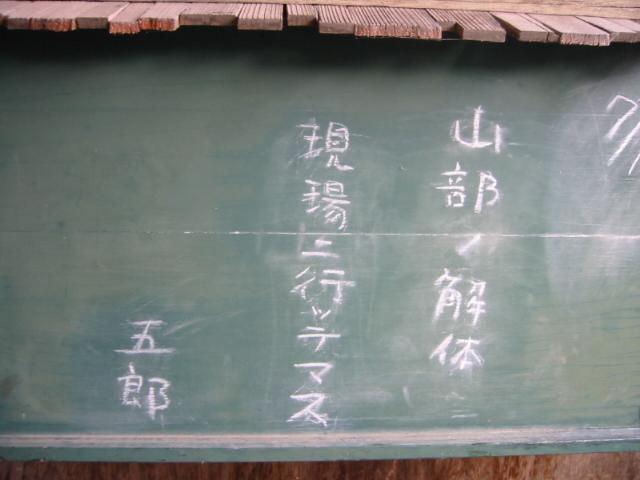 山部ノ解体
現場ニ行ッテマス
五郎